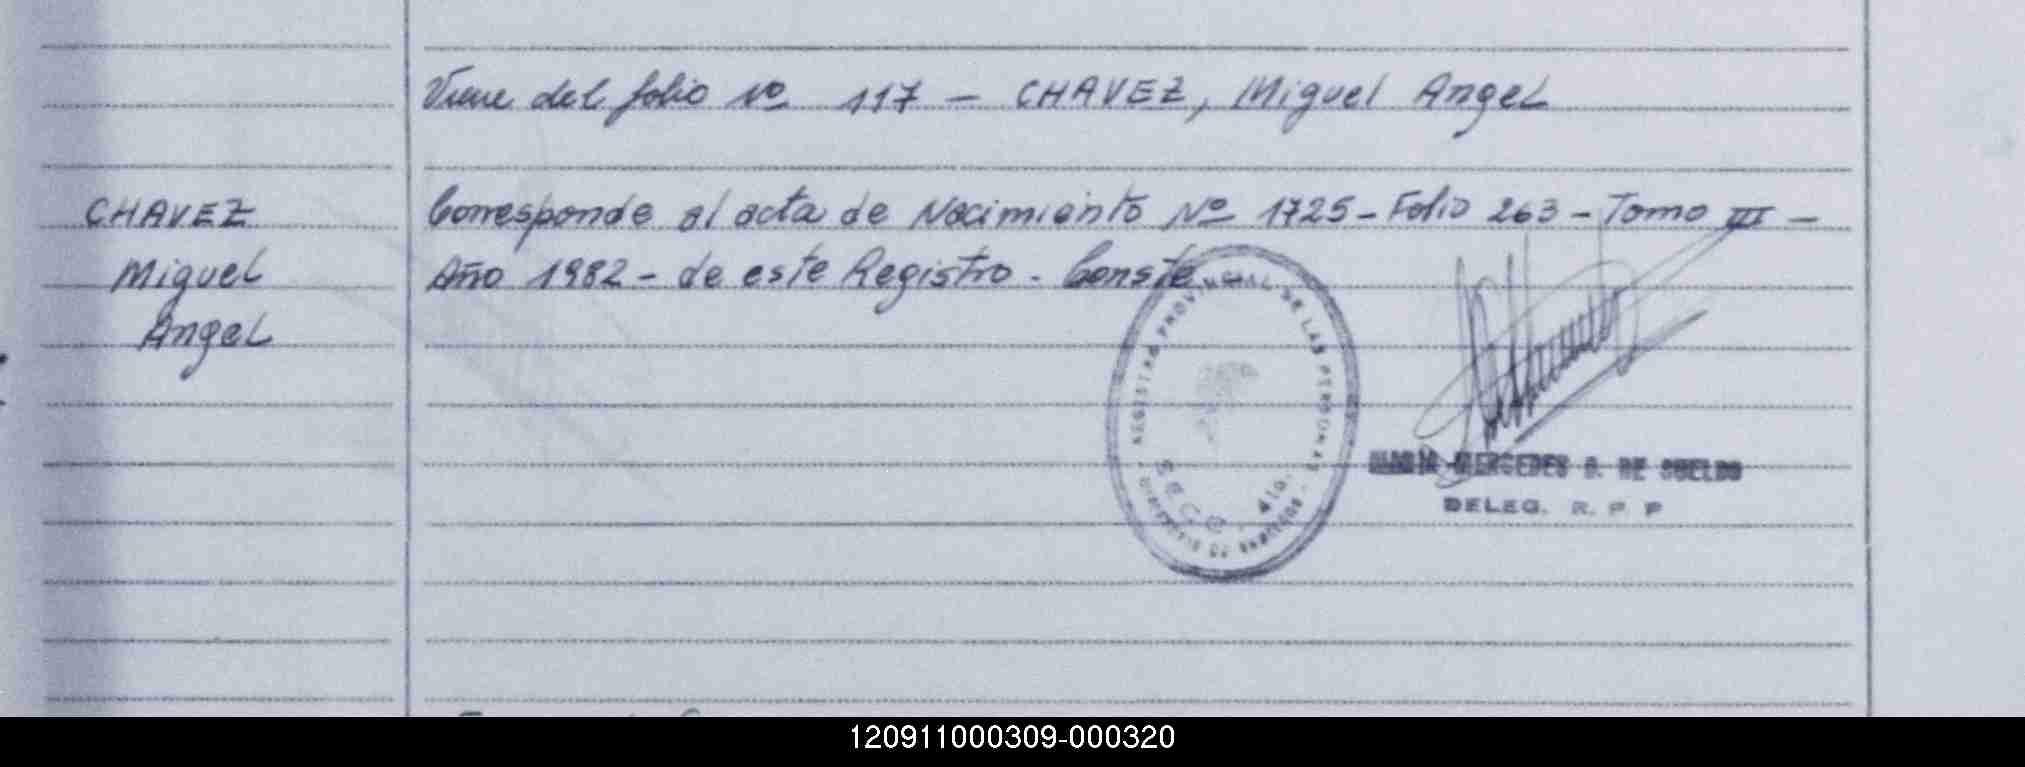 Viene del folio Nº 117 - CHAVEZ, Miguel Angel
CHAVEZ
Miguel
Angel
Corresponde al acta de Nacimiento Nº 1725 - Folio 263 - Tomo III -
Año 1982 - de este Registro - Conste
REGISTRO PROVINCIAL DE LAS PERSONAS
MARIA MERCEDES G. DE SUELDO
DELEG. R. P. P
120911000309-000320